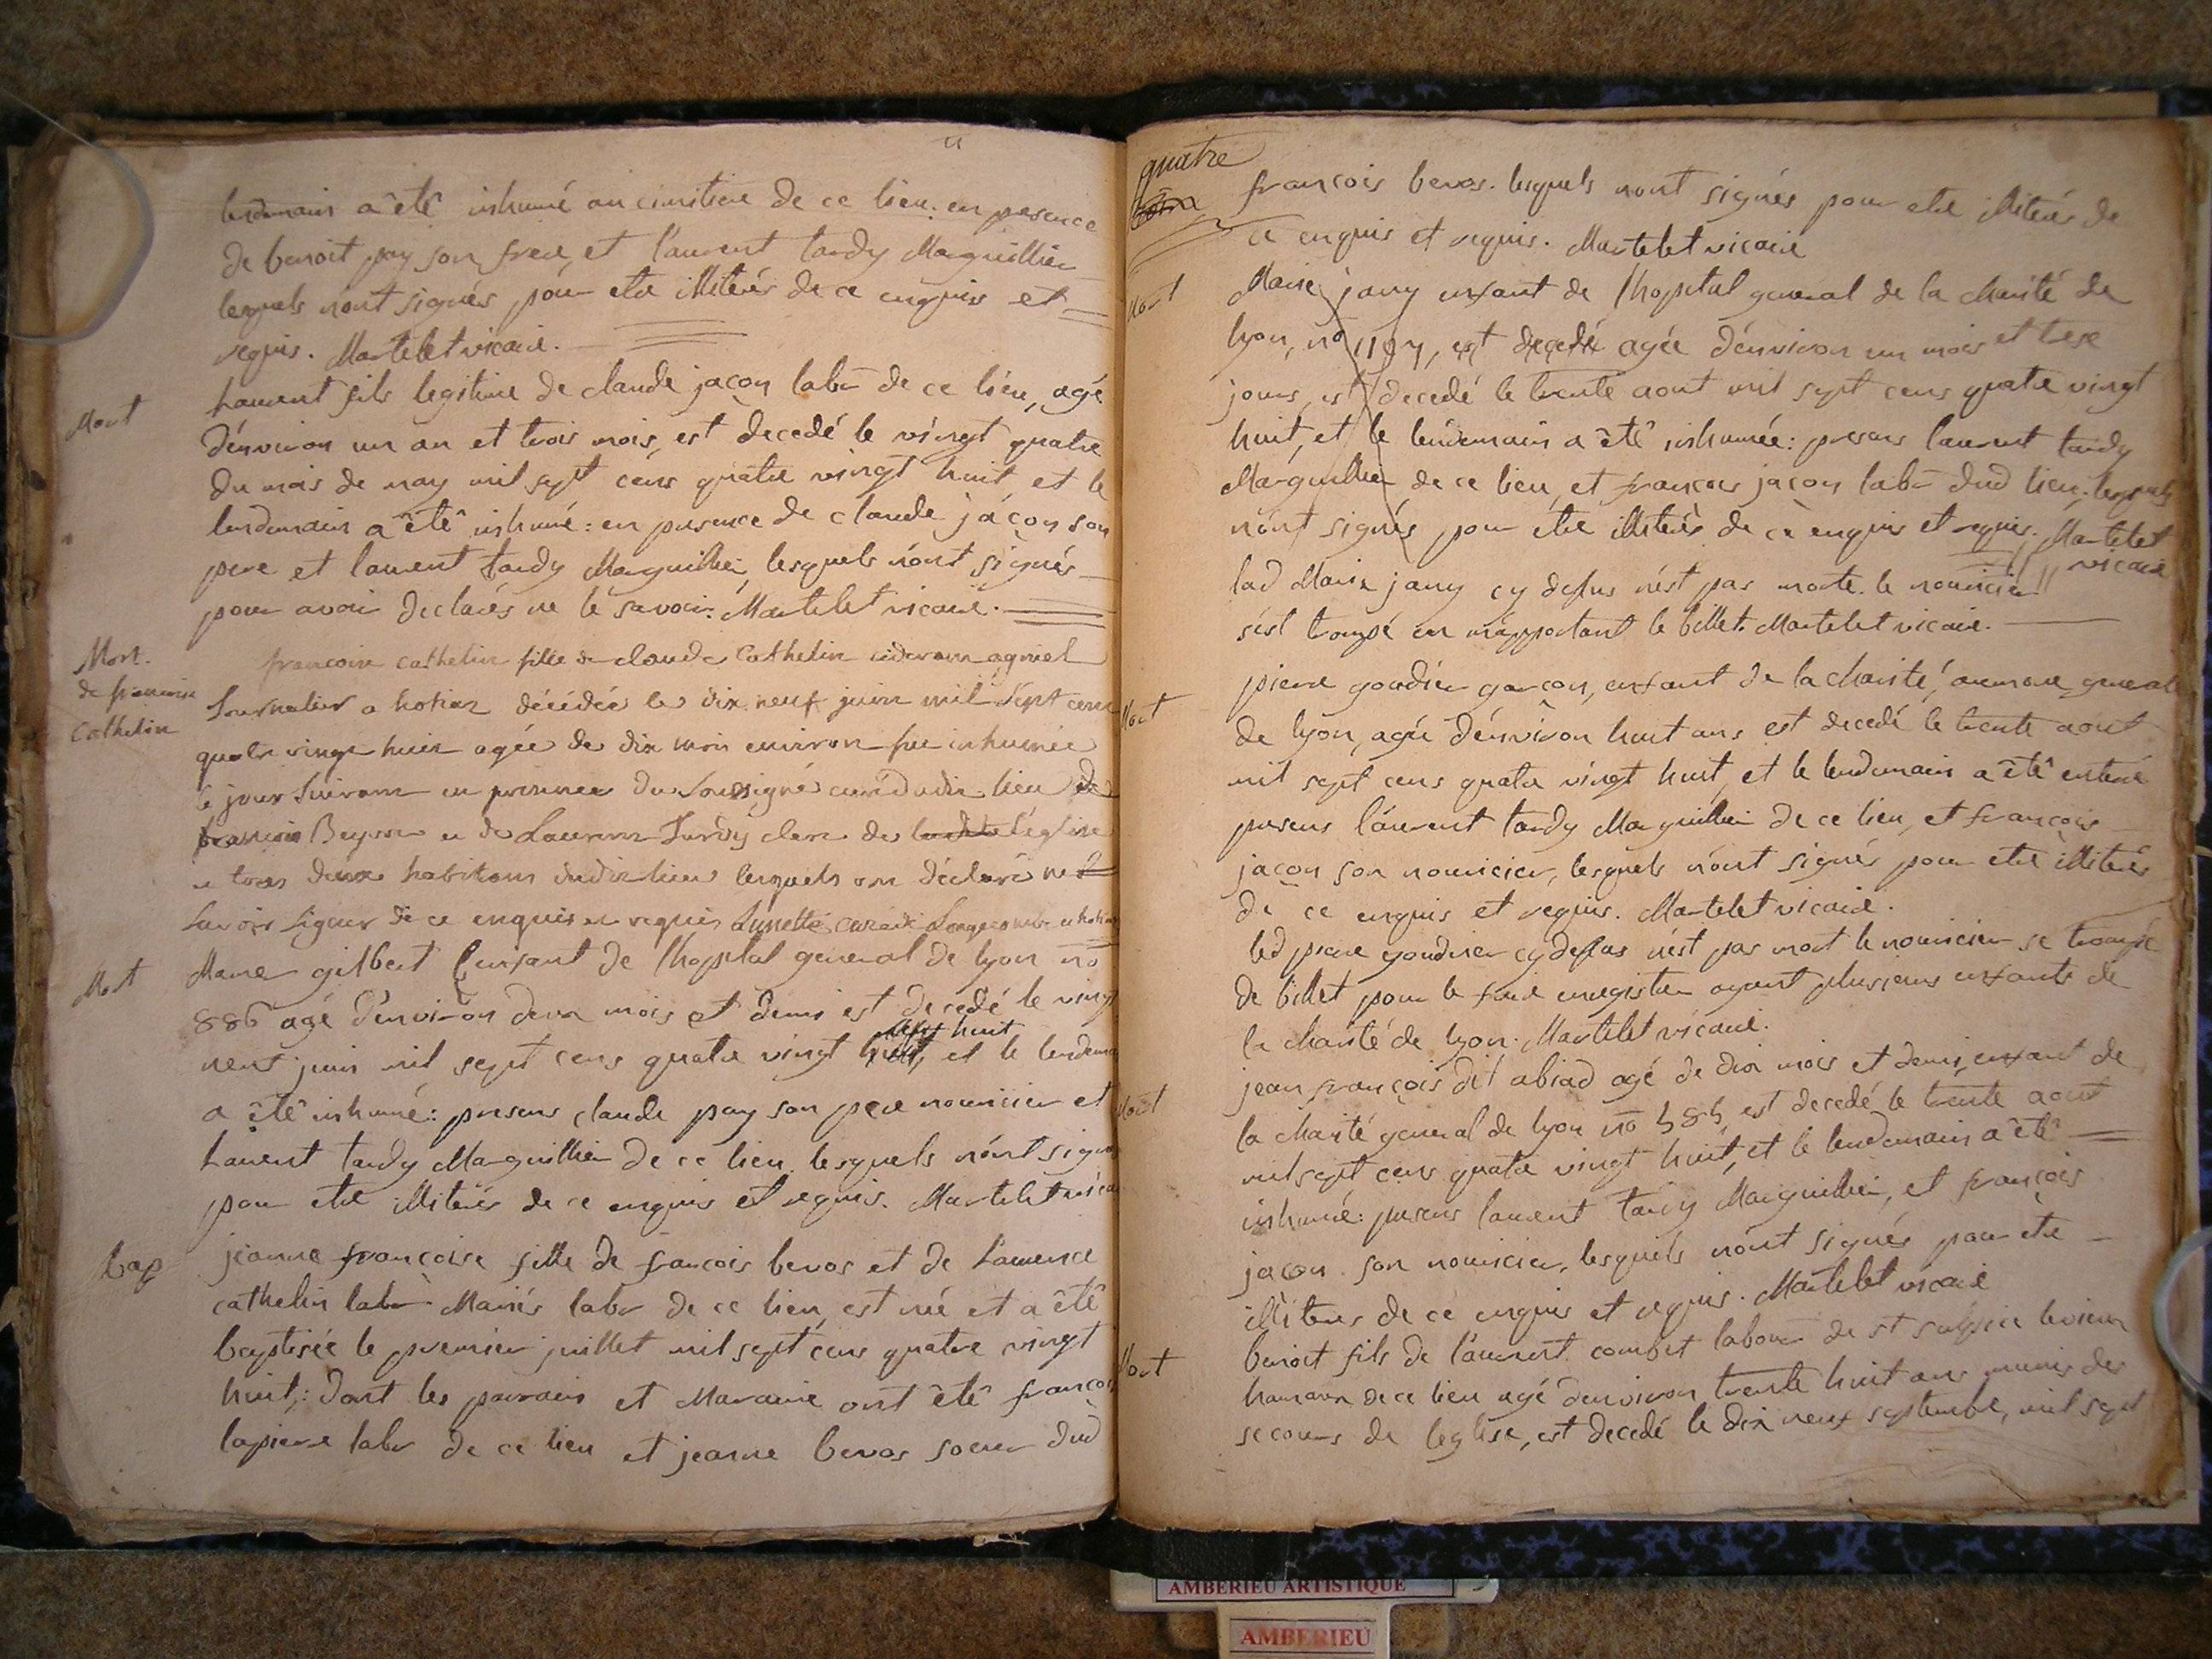 lendemain a êté inhumé au cimitiere de ce lieu: en presence
de benoit pay son frere, et laurent tardy Marguillier
lesquels n'ont signés pour etre illiterés de ce enquis et
requis. Martelet vicaire.
Mort
Laurent fils legitime de claude jaçon labr de ce lieu, agé
d'environ un an et trois mois, est decedé le vingt quatre
du mois de may mil sept cens quatre vingt huit et le
lendemain a êté inhumé: en presence de claude jaçon son
pere et laurent tardy Marguillier, lesquels n'ont signés
pour avoir declarés ne le savoir: Martelet vicaire.
Mort.
de francoise
Cathelin
francoise cathelin fille de claude Cathelin agniel
Journalier a décédée le dix neuf juin mil sept cens
quatre vingt huit agée de dix mois environ fut inhumée
le jour suivant en presence du soussigné curé dudit lieu de
francois et de Laurent Tardy clerc de l'église
et tous deux habitans dudit lieu lesquels ont déclaré ne
savoir signer de ce enquis et requis curé de
Mort
Marie gilbert enfant de l'hopital general de lyon no
886 agé d'environ deux mois et demi est decedé le vingt
neuf juin mil sept cens quatre vingt huit, et le lendemain
a êté inhumé: presens claude pay son pere nouricier et
Laurent tardy Marguillier de ce lieu lesquels n'ont signés
pour etre illiterés de ce enquis et requis. Martelet vicaire
bap
jeanne françoise fille de françois bevos et de Laurence
cathelin labr Mariés labr de ce lieu, est née et a êté
baptisée le premier juillet mil sept cens quatre vingt
huit,: dont les parrain et Maraine ont êté françois
lapierre labr de ce lieu et jeanne bevos soeur dud
quatre
françois bevos. lesquels n'ont signés pour etre illiterés de
ce enquis et requis. Martelet vicaire
Mort
Marie jany enfant de l'hopital general de la charité de
lyon, no est decedé agée d'environ un mois et treze
jours, est decedé le trente aout mil sept cens quatre vingt
huit, et le lendemain a êté inhumée: presens laurent tardy
Marguillier de ce lieu, et françois jaçon labr dud lieu, lesquels
n'ont signés pour etre illiterés de ce enquis et requis. Martelet
vicaire
lad Marie jany cy dessus n'est pas morte. le nouricier
s'est trompé en m'apportant le billet. Martelet vicaire.
Mort
pierre goudier garçon, enfant de la charité, aumone generale
de lyon, agé d'environ huit ans est decedé le trente aout
mil sept cens quatre vingt huit, et le lendemain a êté enterré
presens laurent tardy Marguillier de ce lieu, et françois
jaçon son nouricier, lesquels n'ont signés pour etre illiterés
de ce enquis et requis. Martelet vicaire.
led pierre goudier cy dessus n'est pas mort le nouricier se trompe
de billet pour le faire enregistrer ayant plusieurs enfants de
la charité de lyon. Martelet vicaire.
Mort
jean françois dit abiad agé de dix mois et demi, enfant de
la charité general de lyon no 585, est decedé le trente aout
mil sept cens quatre vingt huit, et le lendemain a êté
inhumé: presens laurent tardy Marguillier, et françois
jaçon son nouricier, lesquels n'ont signés pour etre
illiterés de ce enquis et requis. Martelet vicaire
Mort
benoit fils de laurent combet labour de st sulpice le vieux
hamau de ce lieu agé d'environ trente huit ans munis des
secours de leglise, est decedé le dix neuf septembre, mil sept
AMBERIEU ARTISTIQUE
AMBERIEU